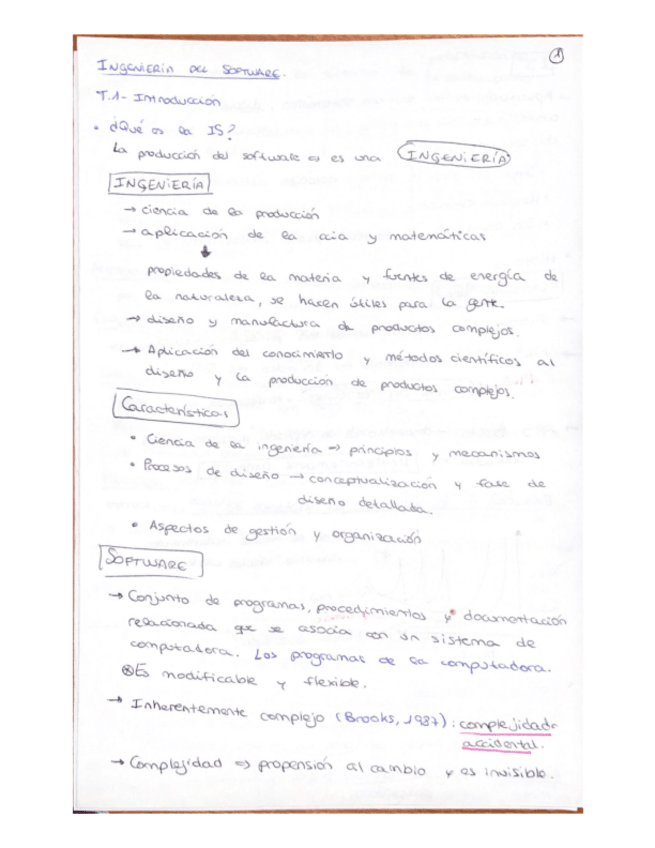 1
INGENIERÍA DEL SOFTWARE.
T.1- Introducción
• ¿Qué es la IS?
La producción del software es es una INGENIERÍA
INGENIERÍA
→ ciencia de la producción
→ aplicación de la cia y matemáticas
↓
propiedades de la materia y fuentes de energía de
la naturaleza, se hacen útiles para la gente.
→ diseño y manufactura de productos complejos.
→ Aplicación del conocimiento y métodos científicos al
diseño y la producción de productos complejos.
Características
• Ciencia de la ingeniería → principios y mecanismos
• Procesos de diseño → conceptualización y fase de
diseño detallada.
• Aspectos de gestión y organización
SOFTWARE
→ Conjunto de programas, procedimientos y documentación
relacionada que se asocia con un sistema de
computadora. Los programas de la computadora.
Es modificable y flexible.
→ Inherentemente complejo (Brooks, 1987): complejidad
accidental.
→ Complejidad ⇒ propensión al cambio y es invisible.